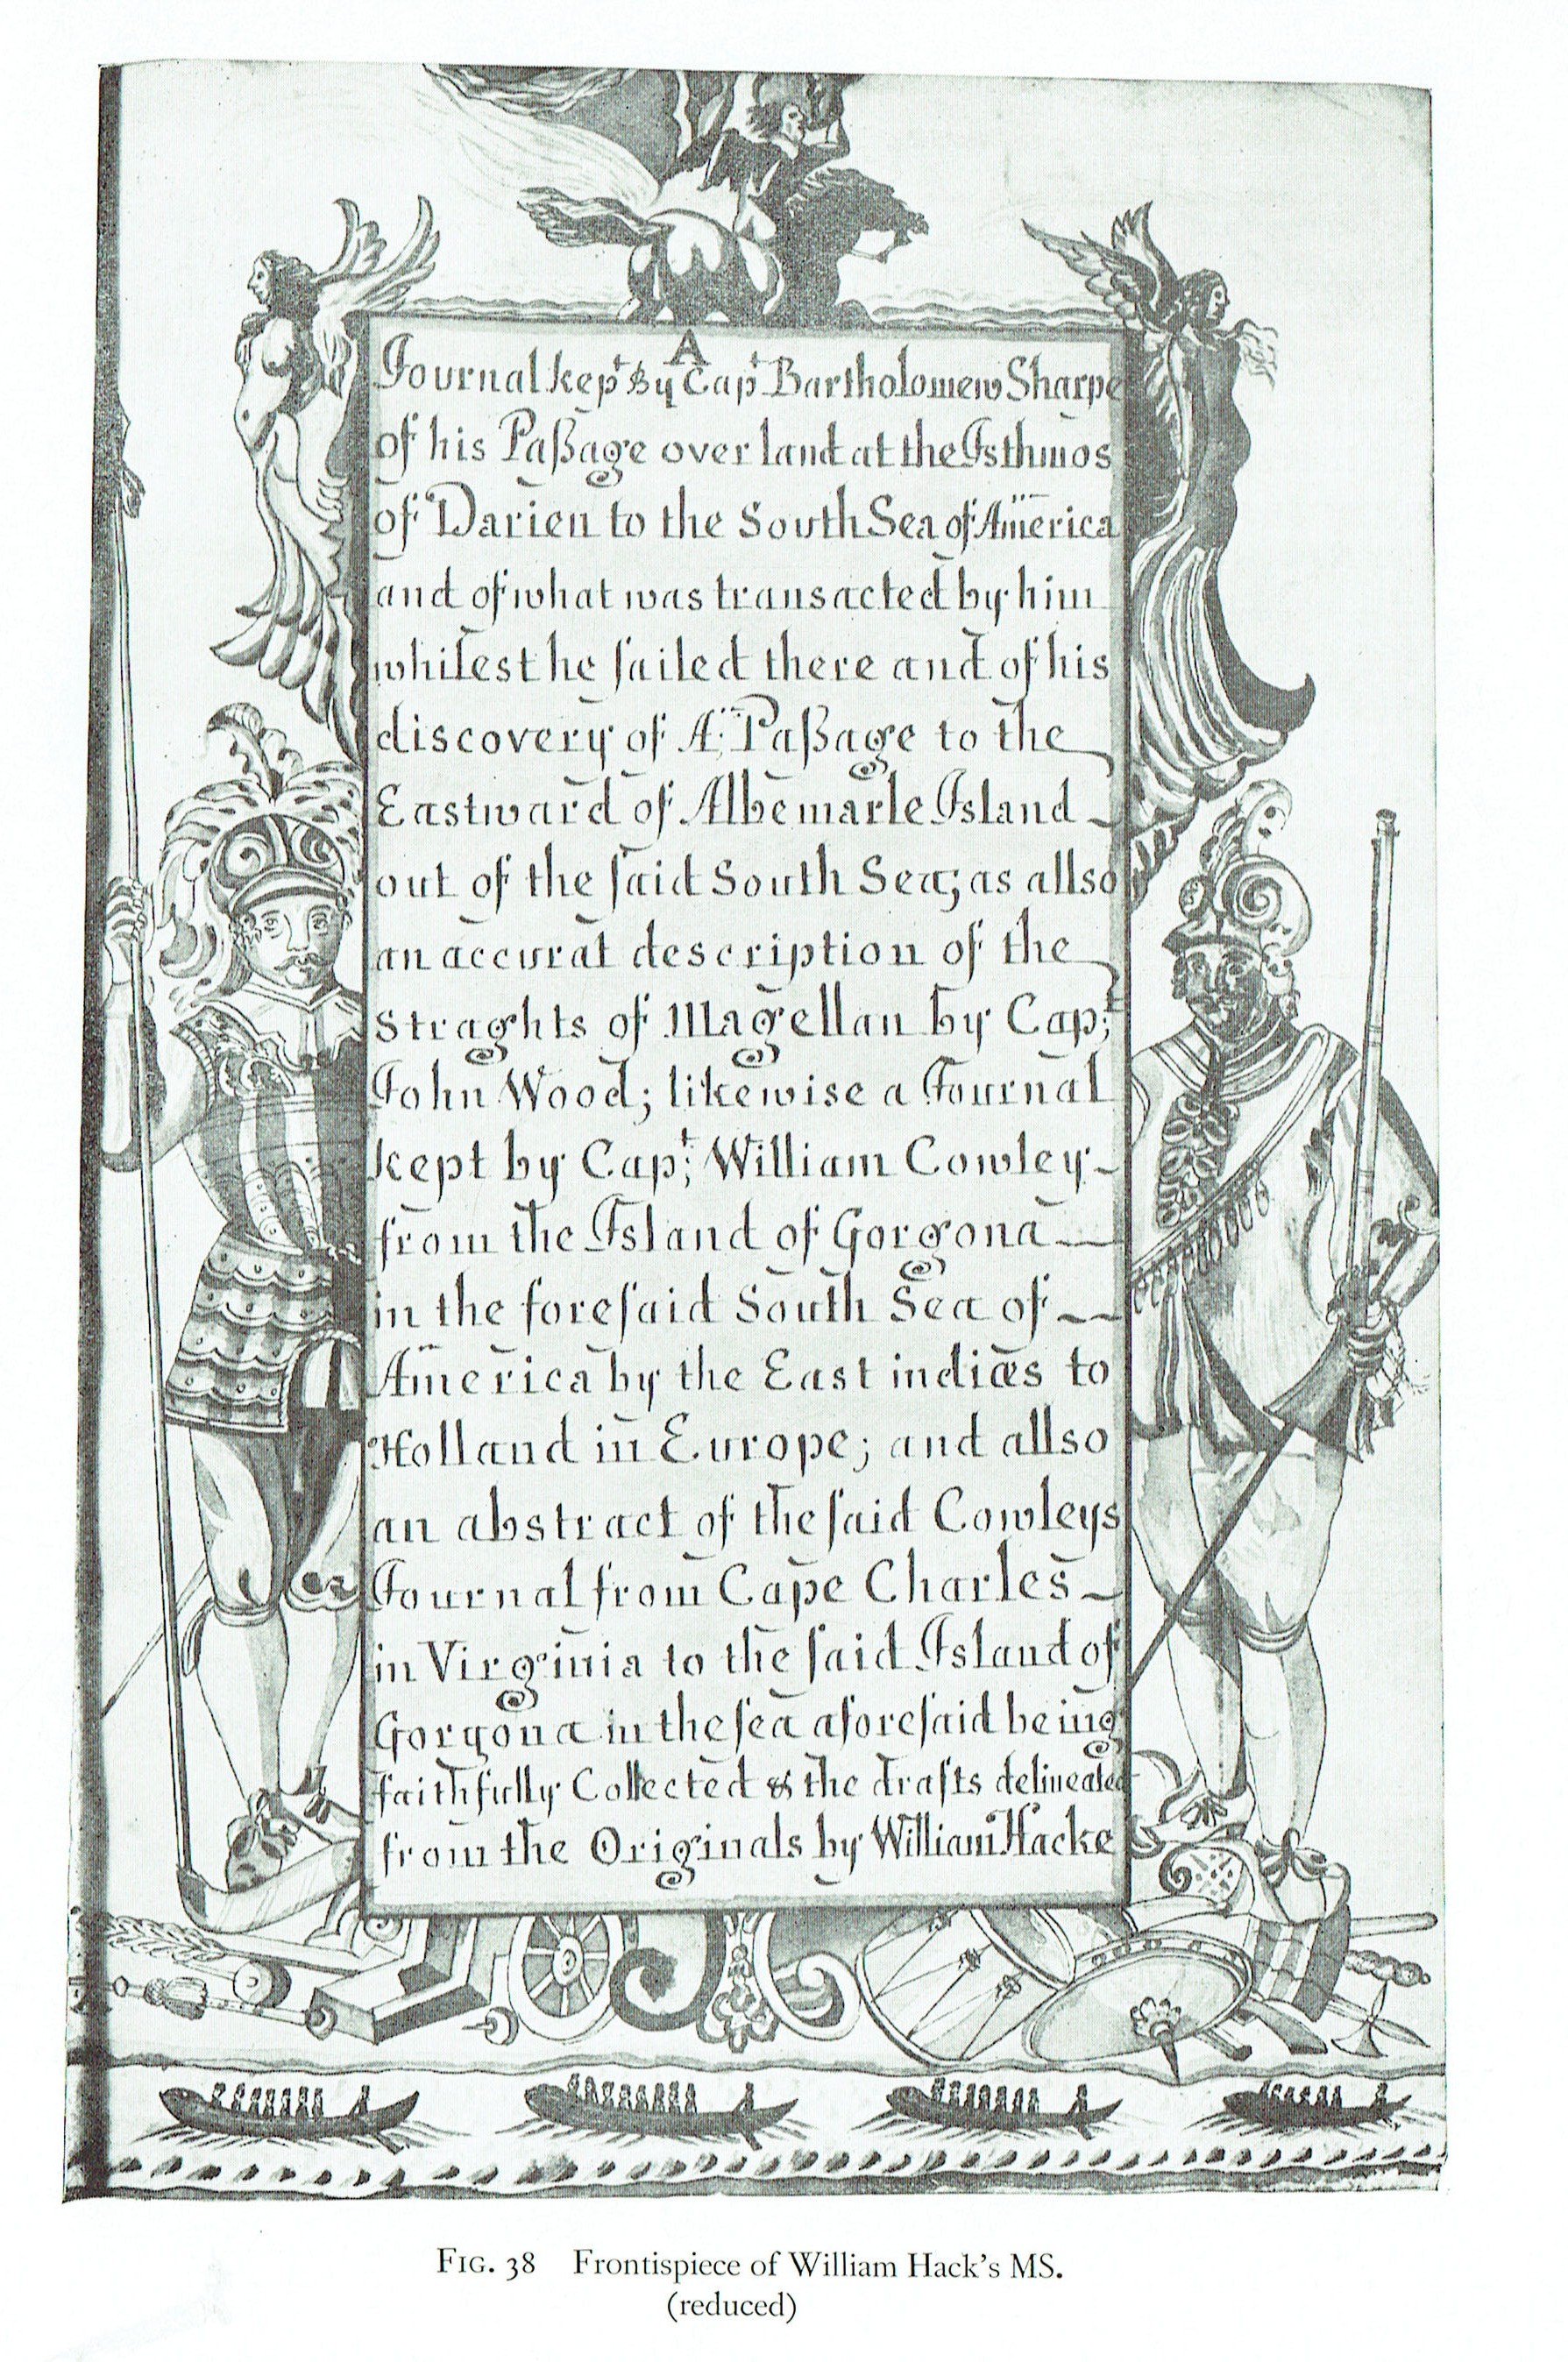 A
Journal kept By Capt Bartholomew Sharpe
of his Paßage over land at the Isthmos
of Darien to the South Sea of America
and of what was transacted by him
whilest he ſailed there and of his
discovery of A Paßage to the
Eastward of Albemarle Island
out of the ſaid South Sea; as allso
an accurat description of the
Straghts of Magellan by Capt;
John Wood; likewise a Journal
kept by Capt; William Cowley
from the Island of Gorgona
in the foreſaid South Sea of
America by the East indiæs to
Holland in Europe; and allso
an abstract of the ſaid Cowleys
Journal from Cape Charles
in Virginia to the ſaid Island of
Gorgona in the ſea aforeſaid being
faithfully Collected & the drafts delineated
from the Originals by William Hacke
FIG. 38 Frontispiece of William Hack's MS.
(reduced)